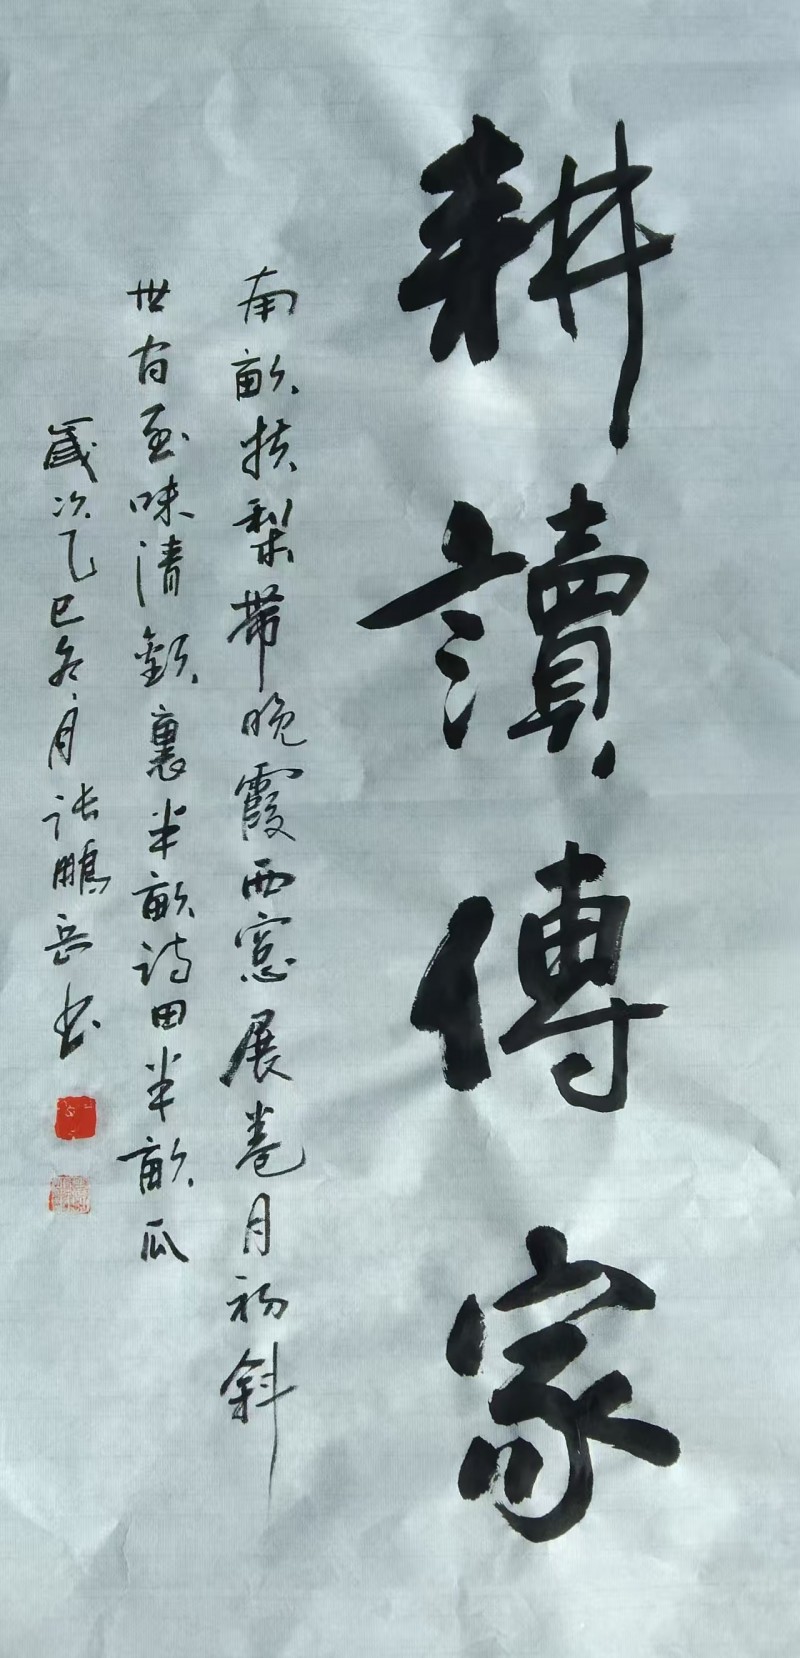 耕讀傳家
南畝扶犁帶晚霞西窓展卷月初斜
世間至味清歡裏半畝诗田半畝瓜
歲次乙巳冬月张鵬岳书